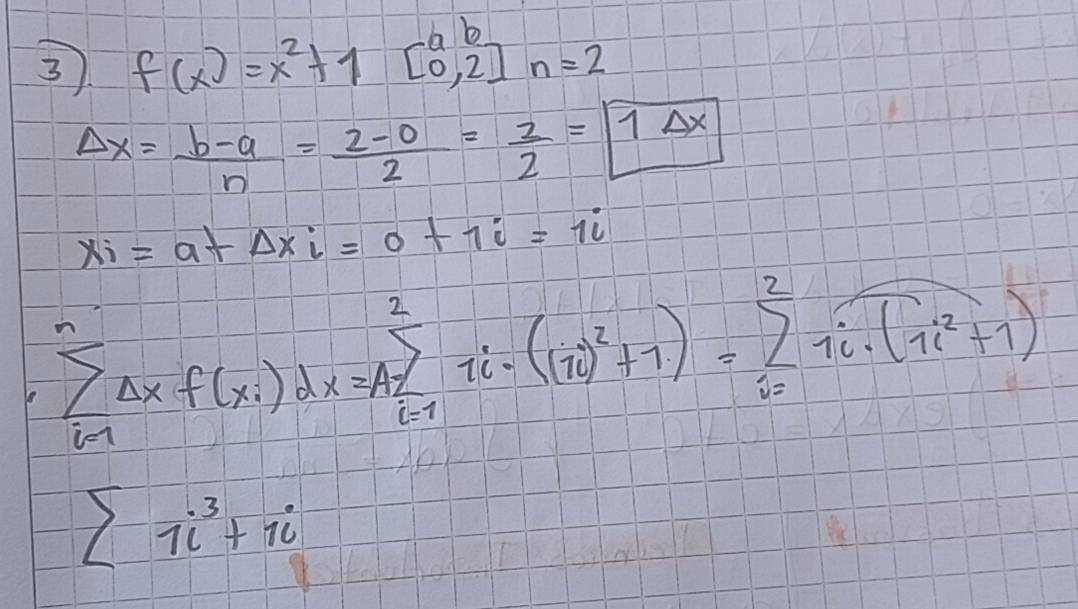 3) f(x) = x² + 1 [0, 2] a b n = 2
Δx = b-a/n = 2-0/2 = 2/2 = 1 Δx
xi = a + Δx i = 0 + 1i = 1i
n∑i=1 Δx f(xi) dx = A = 2∑i=1 1i · ((1i)² + 1) = 2∑i= 1i · (1i² + 1)
∑ 1i³ + 1i